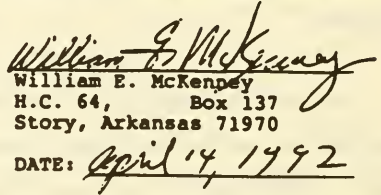 William E. McKenney
William E. McKenney
H.C. 64, Box 137
Story, Arkansas 71970
DATE: April 14, 1992